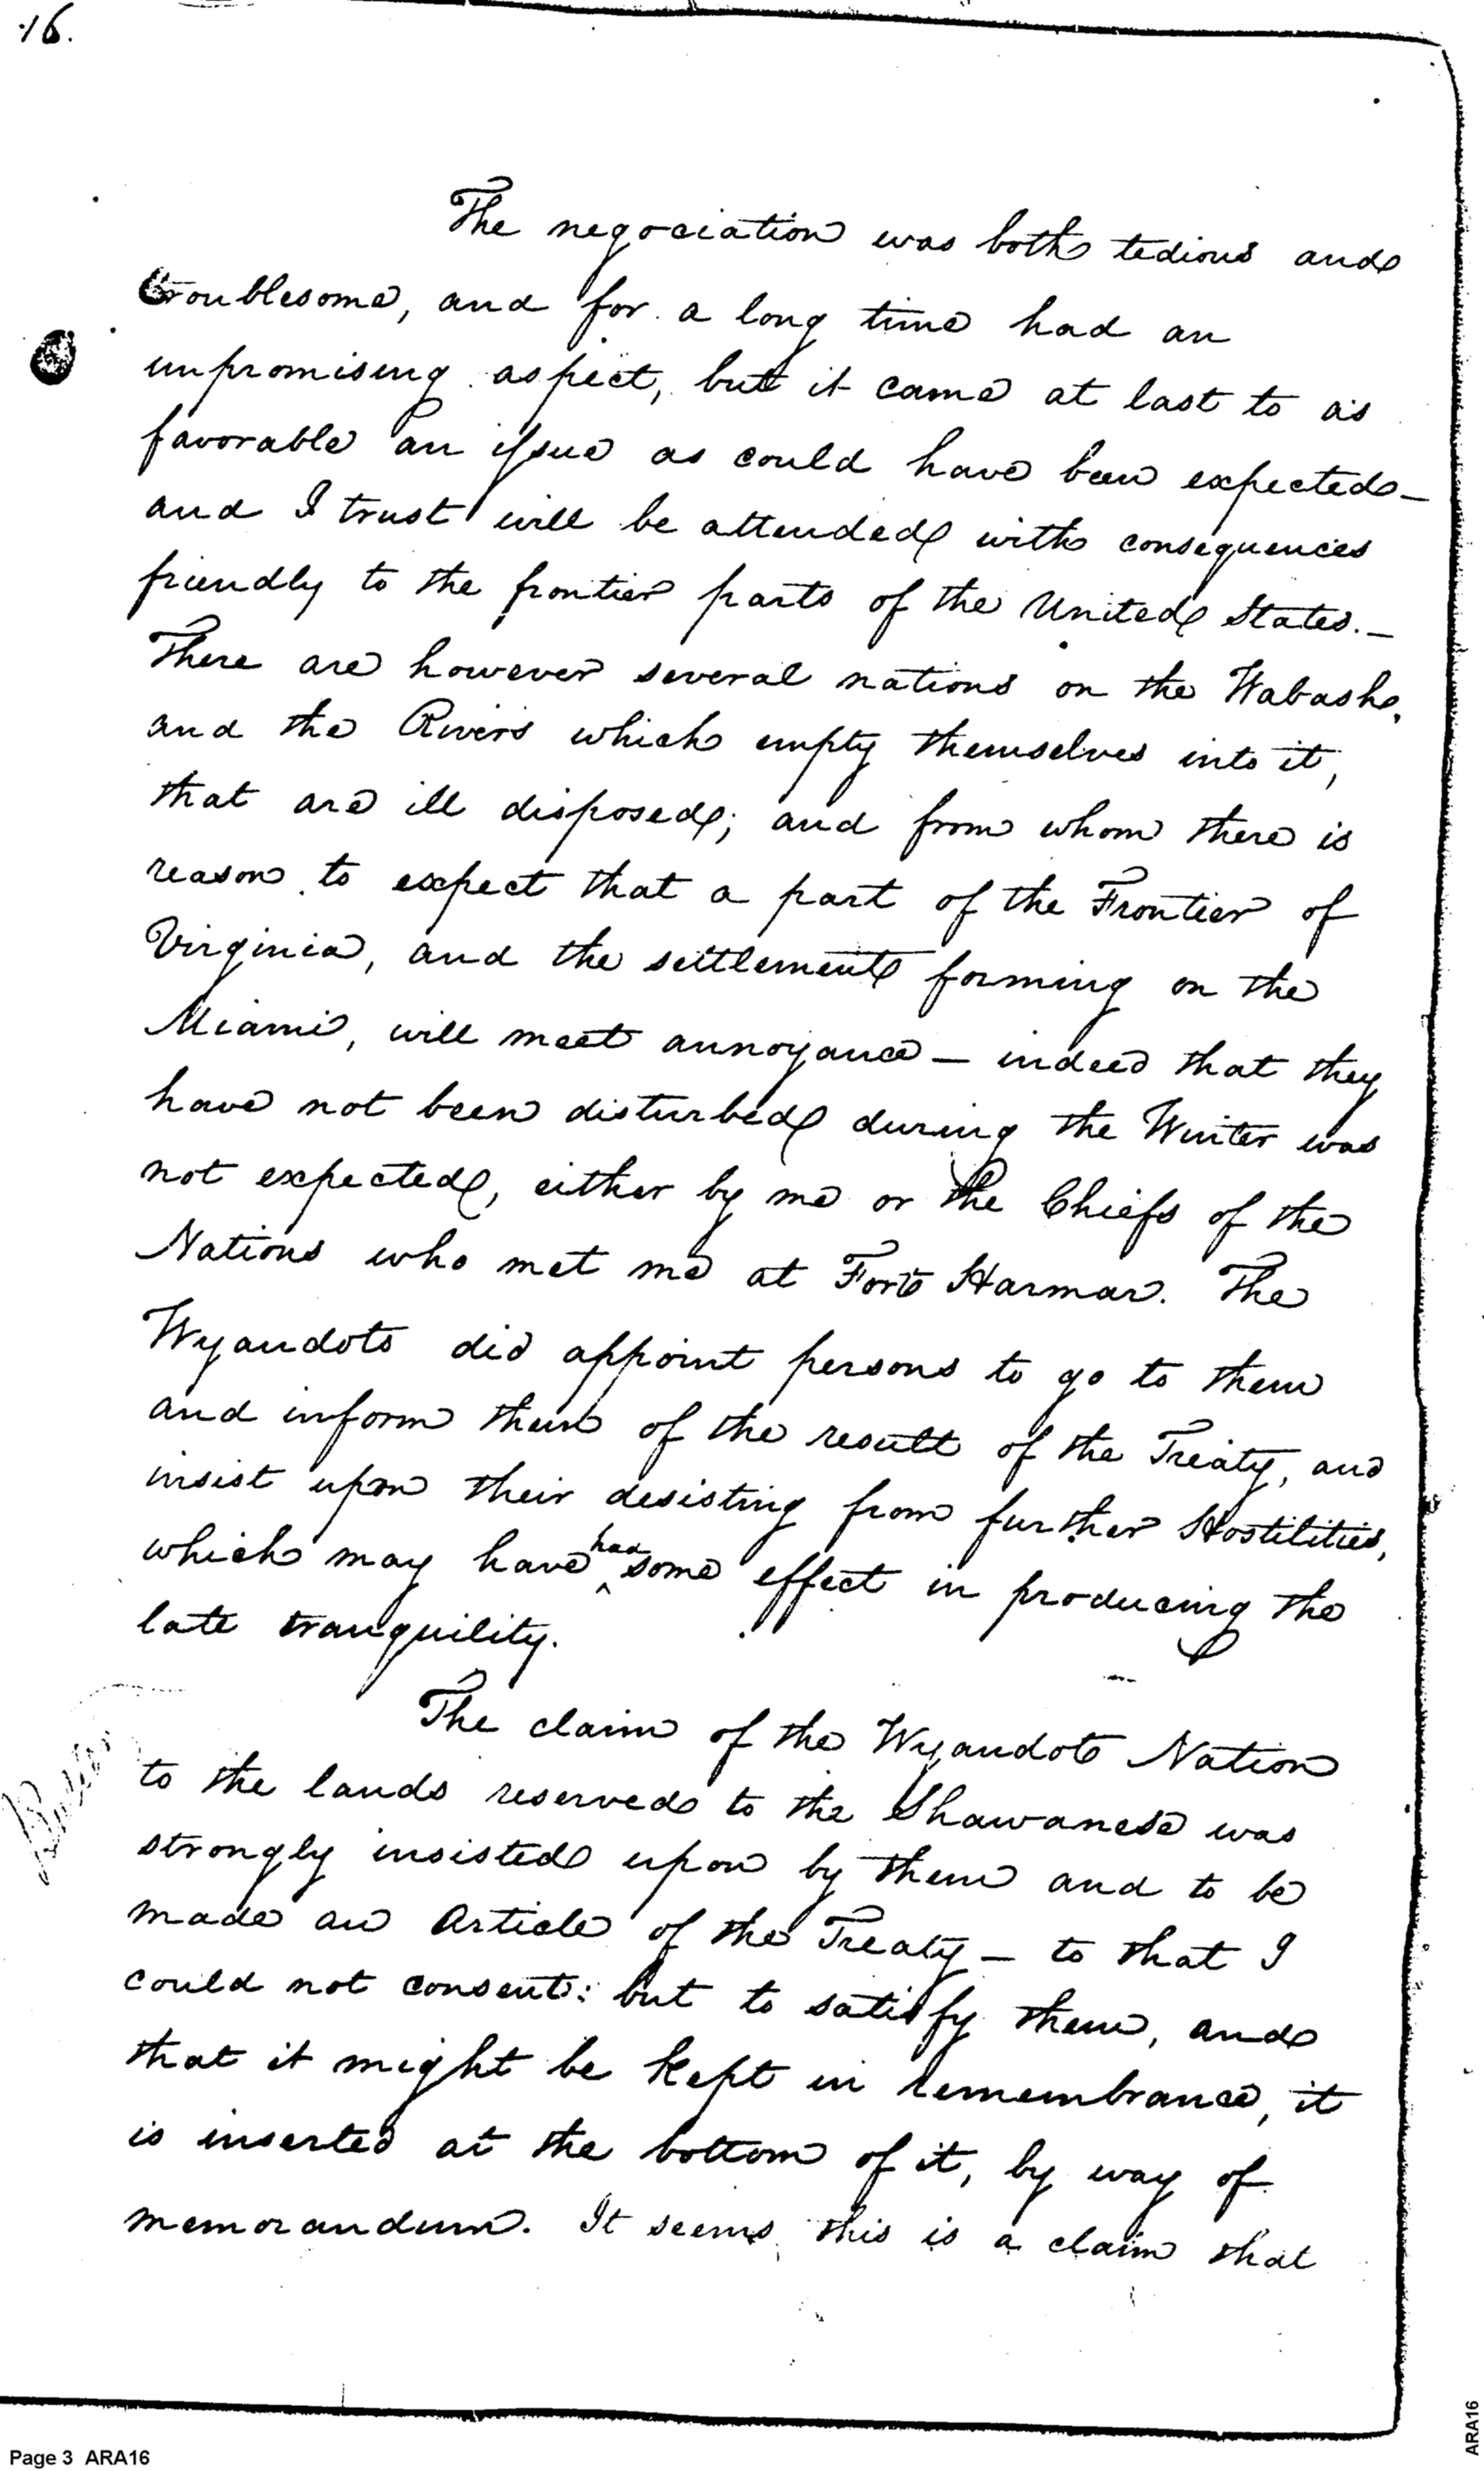 16.
The negociation was both tedious and
troublesome, and for a long time had an
unpromising aspect, but it came at last to as
favorable an issue as could have been expected—
and I trust will be attended with consequences
friendly to the frontier parts of the United States.—
There are however several nations on the Wabash,
and the Rivers which empty themselves into it,
that are ill disposed; and from whom there is
reason to expect that a part of the Frontier of
Virginia, and the settlements forming on the
Miami, will meet annoyance — indeed that they
have not been disturbed during the Winter was
not expected, either by me or the Chiefs of the
Nations who met me at Fort Harmar. The
Wyandots did appoint persons to go to them
and inform them of the result of the Treaty, and
insist upon their desisting from further Hostilities,
which may have had some effect in producing the
late tranquility.
The claim of the Wyandot Nation
to the lands reserved to the Shawanese was
strongly insisted upon by them and to be
made an Article of the Treaty — to that I
could not consent: but to satisfy them, and
that it might be kept in remembrance, it
is inserted at the bottom of it, by way of
memorandum. It seems this is a claim that
Page 3 ARA16
ARA16